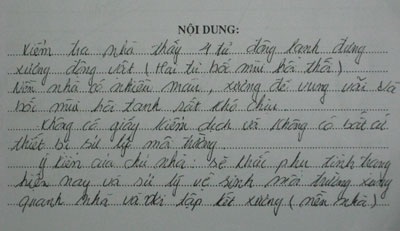 NỘI DUNG:
Kiểm tra nhà thấy 4 tủ đông lạnh đựng
xương động vật (Hai tủ bốc mùi hôi thối)
Nền nhà có nhiều máu, xương để vung vãi và
bốc mùi hôi tanh rất khó chịu
Không có giấy kiểm dịch và không có bất cứ
thiết bị sử lý môi trường
Ý kiến của chủ nhà: sẽ khắc phụ tình trạng
hiện nay và sử lý vệ sinh môi trường xung
quanh nhà và nơi tập kết xương (nền nhà)